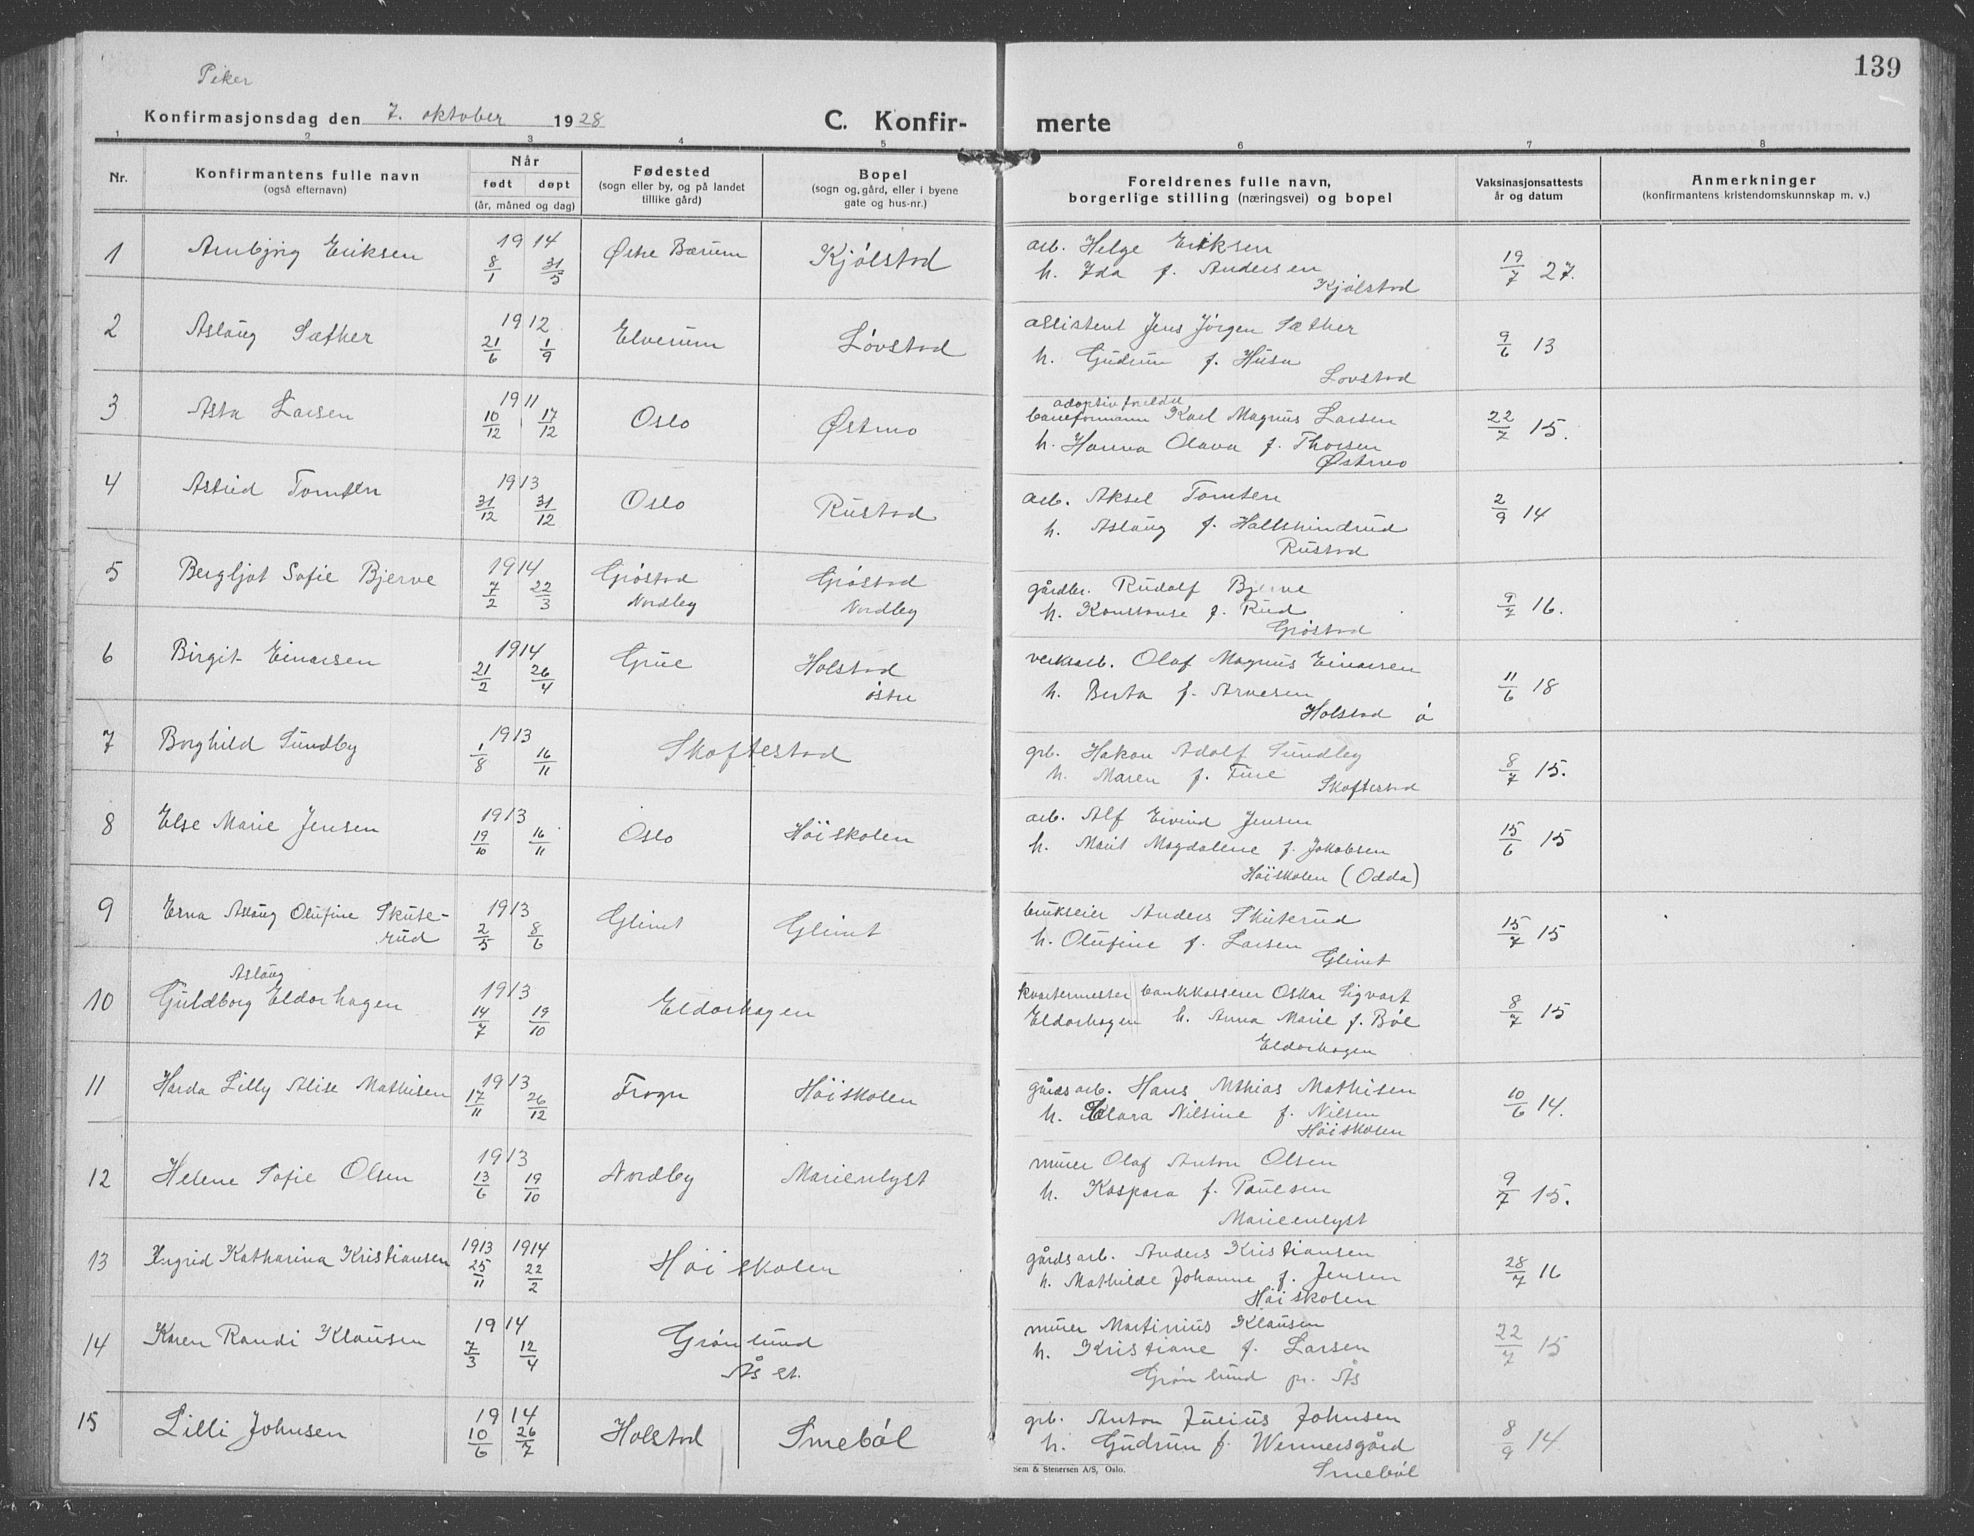 139
Peker
Konfirmasjonsdag den 7. oktober 1928
C. Konfir- merte
1 2 3 4 5 6 7 8
Nr.
Konfirmantens fulle navn
(også efternavn)
Når
født døpt
(år, måned og dag)
Fødested
(sogn eller by, og på landet
tillike gård)
Bopel
(sogn og gård, eller i byene
gate og hus-nr.)
Foreldrenes fulle navn,
borgerlige stilling (næringsvei) og bopel
Vaksinasjonsattests
år og datum
Anmerkninger
(konfirmantens kristendomskunnskap m. v.)
1 Arnbjørg Eriksen 1914 8/1 31/5 Østre Bærum Kjølstad
arb. Helge Eriksen
h. Ida f. Andersen
Kjølstad
19/7 27.
2 Aslaug Sæther 1912 21/6 1/9 Elverum Løvstad
assistent Jens Jørgen Sæther
h. Gudrun f. Huse
Løvstad
9/6 13
3 Asta Larsen 1911 10/12 17/12 Oslo Østmo
adoptivforeldre
baneformann Karl Magnus Larsen
h. Hanna Olava f. Thorsen
Østmo
22/7 15.
4 Astrid Tomten 1913 31/12 31/12 Oslo Rustad
arb. Aksel Tomten
h. Aslaug f. Hallshindrud
Rustad
2/9 14
5 Bergljot Sofie Bjerve 1914 7/2 22/3 Grøstad Nordby Grøstad Nordby
gårdbr. Rudolf Bjerve
h. Konstanse f. Rud
Grøstad
9/7 16.
6 Birgit Einarsen 1914 21/2 26/4 Grue Holstad østre
verksarb. Olaf Magnus Einarsen
h. Berta f. Arnesen
Holstad ø
11/6 18
7 Borghild Sundby 1913 1/8 16/11 Skoftestad
grb. Hakon Adolf Sundby
h. Maren f. Ture
Skoftestad
8/7 15.
8 Else Marie Jensen 1913 19/10 16/11 Oslo Høiskolen
arb. Alf Eivind Jensen
h. Marit Magdalene f. Jakobsen
Høiskolen (Odda)
15/6 15
9 Erna Aslaug Olufine Skute-
rud 1913 2/5 8/6 Glimt Glimt
brukseier Anders Skuterud
h. Olufine f. Larsen
Glimt
15/7 15
Aslaug
10 Guldborg Eldorhagen 1913 14/7 19/10 Eldorhagen
kvartermester bankkasserer Oskar Sigvart
Eldorhagen h. Anna Marie f. Bøe
Eldorhagen
8/7 15
11 Harda Lilly Alise Mathisen 1913 17/11 26/12 Frogn Høiskolen
gårdsarb. Hans Mthias Mathisen
h. Klara Nilsine f. Nilsen
Høiskolen
10/6 14.
12 Helene Sofie Olsen 1913 13/6 19/10 Nordby Marienlyst
murer Olaf Anton Olsen
h. Kaspara f. Paulsen
Marieenlyst
9/7 15.
13 Ingrid Katharina Kristiansen 1913 1914 25/11 22/2 Høiskolen
gårdsarb. Anders Kristiansen
h. Mathilde Johanne f. Jensen
Høiskolen
28/7 16
14 Karen Randi Klausen 1914 7/3 12/4 Grønlund
Ås st.
murer Martinius Klausen
h. Kristiane f. Larsen
Grønlund pr. Ås
22/7 15
15 Lilli Johnsen 1914 10/6 26/7 Holstad Smebøl
grb. Anton Julius Johnsen
h. Gudrun f. Wennersgård
Smebøl
8/9 14
Sem & Stenersen A/S, Oslo.